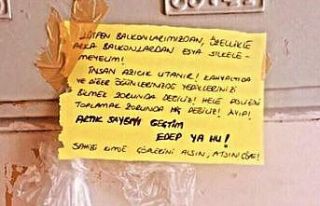 LÜTFEN BALKONLARIMIZDAN, ÖZELLİKLE
ARKA BALKONLARDAN EŞYA SİLKELE-
MEYELİM!
İNSAN AZICIK UTANIR! KAHVALTIDA
VE DİĞER ÖĞÜNLERİNİZDE YEDİKLERİNİZİ
BİLMEK ZORUNDA DEĞİLİZ! HELE
TOPLAMAK ZORUNDA HİÇ DEĞİLİZ! AYIP!
ARTIK SAYGIYI GEÇTİM
EDEP YA HU!
SAHİBİ KİMSE ÇÖPLERİNİ ALSIN,